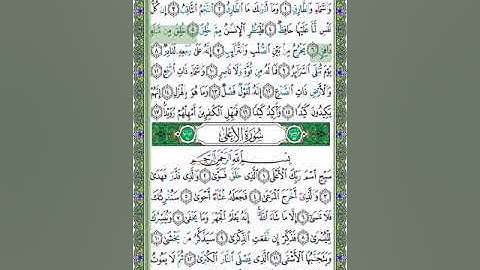 وَٱلسَّمَآءِ وَٱلطَّارِقِ ١ وَمَآ أَدْرَىٰكَ مَا ٱلطَّارِقُ ٢ ٱلنَّجْمُ ٱلثَّاقِبُ ٣ إِن كُلُّ
نَفْسٍ لَّمَّا عَلَيْهَا حَافِظٌ ٤ فَلْيَنظُرِ ٱلْإِنسَٰنُ مِمَّ خُلِقَ ٥ خُلِقَ مِن مَّآءٍ
دَافِقٍ ٦ يَخْرُجُ مِنۢ بَيْنِ ٱلصُّلْبِ وَٱلتَّرَآئِبِ ٧ إِنَّهُۥ عَلَىٰ رَجْعِهِۦ لَقَادِرٌ ٨
يَوْمَ تُبْلَى ٱلسَّرَآئِرُ ٩ فَمَا لَهُۥ مِن قُوَّةٍ وَلَا نَاصِرٍ ١٠ وَٱلسَّمَآءِ ذَاتِ ٱلرَّجْعِ ١١
وَٱلْأَرْضِ ذَاتِ ٱلصَّدْعِ ١٢ إِنَّهُۥ لَقَوْلٌ فَصْلٌ ١٣ وَمَا هُوَ بِٱلْهَزْلِ ١٤ إِنَّهُمْ
يَكِيدُونَ كَيْدًا ١٥ وَأَكِيدُ كَيْدًا ١٦ فَمَهِّلِ ٱلْكَٰفِرِينَ أَمْهِلْهُمْ رُوَيْدًۢا ١٧
سُورَةُ الأَعْلَىٰ
بِسْمِ ٱللَّهِ ٱلرَّحْمَٰنِ ٱلرَّحِيمِ
سَبِّحِ ٱسْمَ رَبِّكَ ٱلْأَعْلَى ١ ٱلَّذِى خَلَقَ فَسَوَّىٰ ٢ وَٱلَّذِى قَدَّرَ فَهَدَىٰ
٣ وَٱلَّذِىٓ أَخْرَجَ ٱلْمَرْعَىٰ ٤ فَجَعَلَهُۥ غُثَآءً أَحْوَىٰ ٥ سَنُقْرِئُكَ
فَلَا تَنسَىٰٓ ٦ إِلَّا مَا شَآءَ ٱللَّهُ إِنَّهُۥ يَعْلَمُ ٱلْجَهْرَ وَمَا يَخْفَىٰ ٧ وَنُيَسِّرُكَ
لِلْيُسْرَىٰ ٨ فَذَكِّرْ إِن نَّفَعَتِ ٱلذِّكْرَىٰ ٩ سَيَذَّكَّرُ مَن يَخْشَىٰ ١٠
وَيَتَجَنَّبُهَا ٱلْأَشْقَى ١١ ٱلَّذِى يَصْلَى ٱلنَّارَ ٱلْكُبْرَىٰ ١٢ ثُمَّ لَا يَمُوتُ